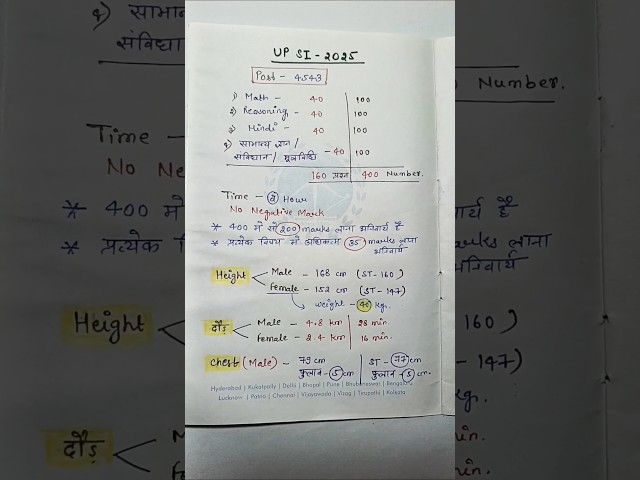 UP SI - 2025
Post - 4543
1) Math - 40 100
2) Reasoning - 40 100
3) Hindi - 40 100
4) सामान्य ज्ञान /
संविधान / मूलविधि - 40 100
160 प्रश्न 400 Number.
Time - ② Hour
No Negative Mark
* 400 में से 200 marks लाना अनिवार्य है
* प्रत्येक विषय में अधिकतम 35 marks लाना
अनिवार्य
Height Male - 168 cm (ST-160)
Female - 152 cm (ST-147)
weight - 40 kg.
दौड़ Male - 4.8 km 28 min.
Female - 2.4 km 16 min.
Chest (Male) - 79 cm ST - 77 cm
फुलाव - 5 cm फुलाव - 5 cm.
Hyderabad | Kukatpally | Delhi | Bhopal | Pune | Bhubaneswar | Bengaluru
Lucknow | Patna | Chennai | Vijayawada | Vizag | Tirupathi | Kolkata
4) सामान
संविधा
Number.
Time -
No Ne
* 400 में
* प्रत्येक
Height
160)
- 147)
kg.
दौड़
min.
min.